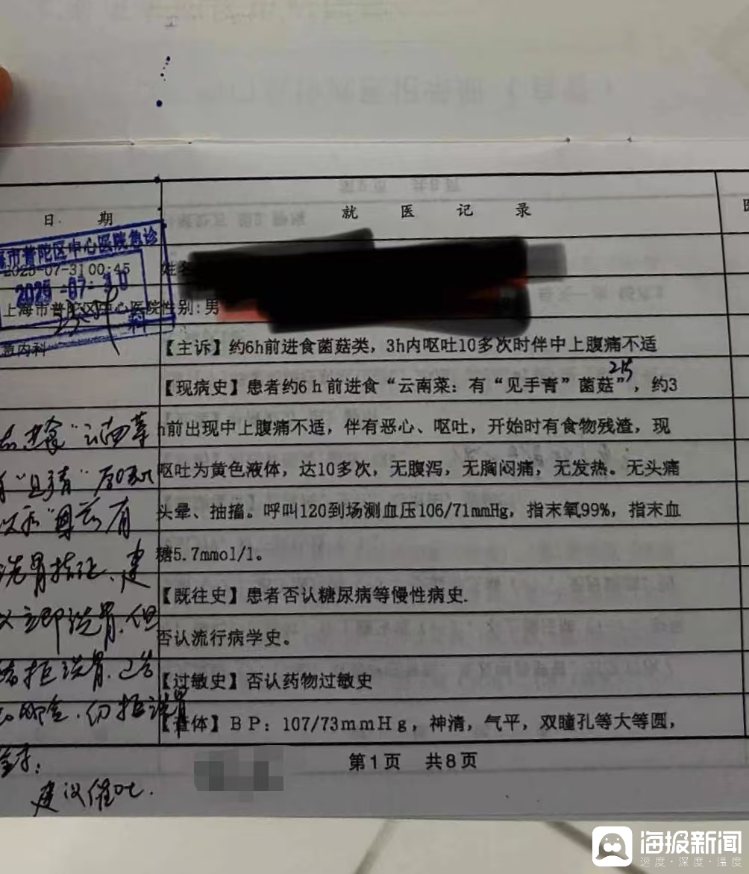 日 期
就 医 记 录
市普陀区中心医院急诊
2025-07-31 00:45
2025-07-30
姓名
上海市普陀区中心医院性别: 男
科
急内科
【主诉】约6h前进食菌菇类，3h内呕吐10多次时伴中上腹痛不适
【现病史】患者约6h前进食“云南菜：有“见手青”菌菇”，约3
h前出现中上腹痛不适，伴有恶心、呕吐，开始时有食物残渣，现
呕吐为黄色液体，达10多次，无腹泻，无胸闷痛，无发热。无头痛
头晕、抽搐。呼叫120到场测血压106/71mmHg，指末氧99%，指末血
糖5.7mmol/l。
【既往史】患者否认糖尿病等慢性病史.
否认流行病学史。
【过敏史】否认药物过敏史
【查体】BP：107/73mmHg，神清，气平，双瞳孔等大等圆，
食“云南菜
有
洗胃指征，建
议立即洗胃，但
拒洗胃，已告
仍拒洗胃
签字：
建议催吐.
第1页 共8页
海报新闻
速度·深度·温度